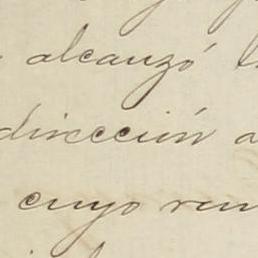 alcanzó
dirección a
cuyo